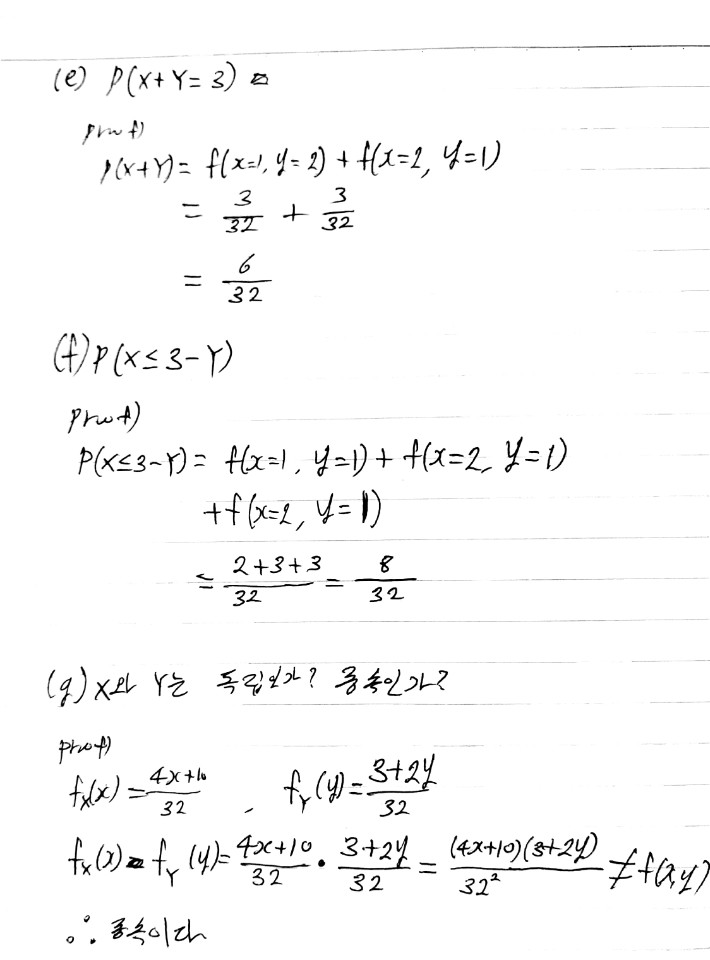 (e) P(X+Y=3)
proof)
P(X+Y) = f(x=1, y=2) + f(x=2, y=1)
= 3/32 + 3/32
= 6/32
(f) P(X≤3-Y)
proof)
P(X≤3-Y) = f(x=1, y=1) + f(x=2, y=1)
+ f(x=2, y=1)
= (2+3+3)/32 = 8/32
(g) X와 Y는 독립인가? 종속인가?
proof)
f_X(x) = (4x+10)/32 , f_Y(y) = (3+2y)/32
f_X(x) f_Y(y) = (4x+10)/32 · (3+2y)/32 = (4x+10)(3+2y)/32² ≠ f(x,y)
∴ 종속이다